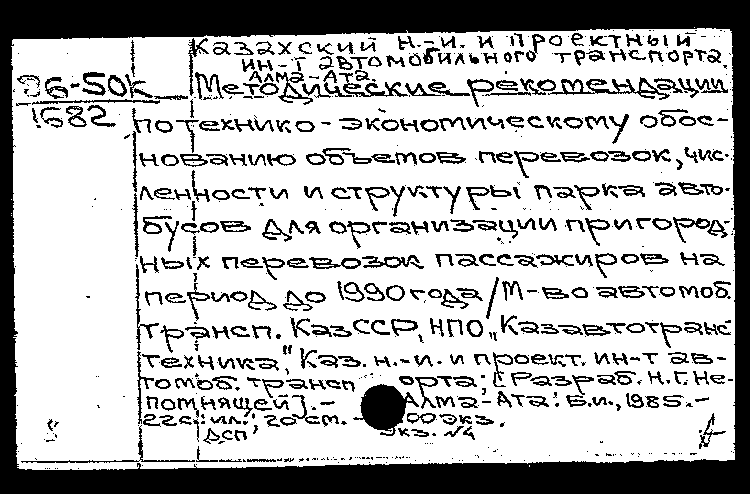 Казахский н.-и. и проектный
ин-т автомобильного транспорта.
Алма-Ата.
Д6-50К Методические рекомендации
1682 по технико-экономическому обос-
нованию объемов перевозок, чис-
ленности и структуры парка авто-
бусов для организации пригород-
ных перевозок пассажиров на
период до 1990 года / М-во автомоб.
трансп. КазССР, НПО „Казавтотранс
техника", Каз. н.-и. и проект. ин-т ав-
томоб. трансп орта; [Разраб. Н.Г. Не-
помнящей]. - Алма-Ата: Б.и., 1985. -
22 с.: ил.; 20 см. - 00 экз.
ДСП экз. №4